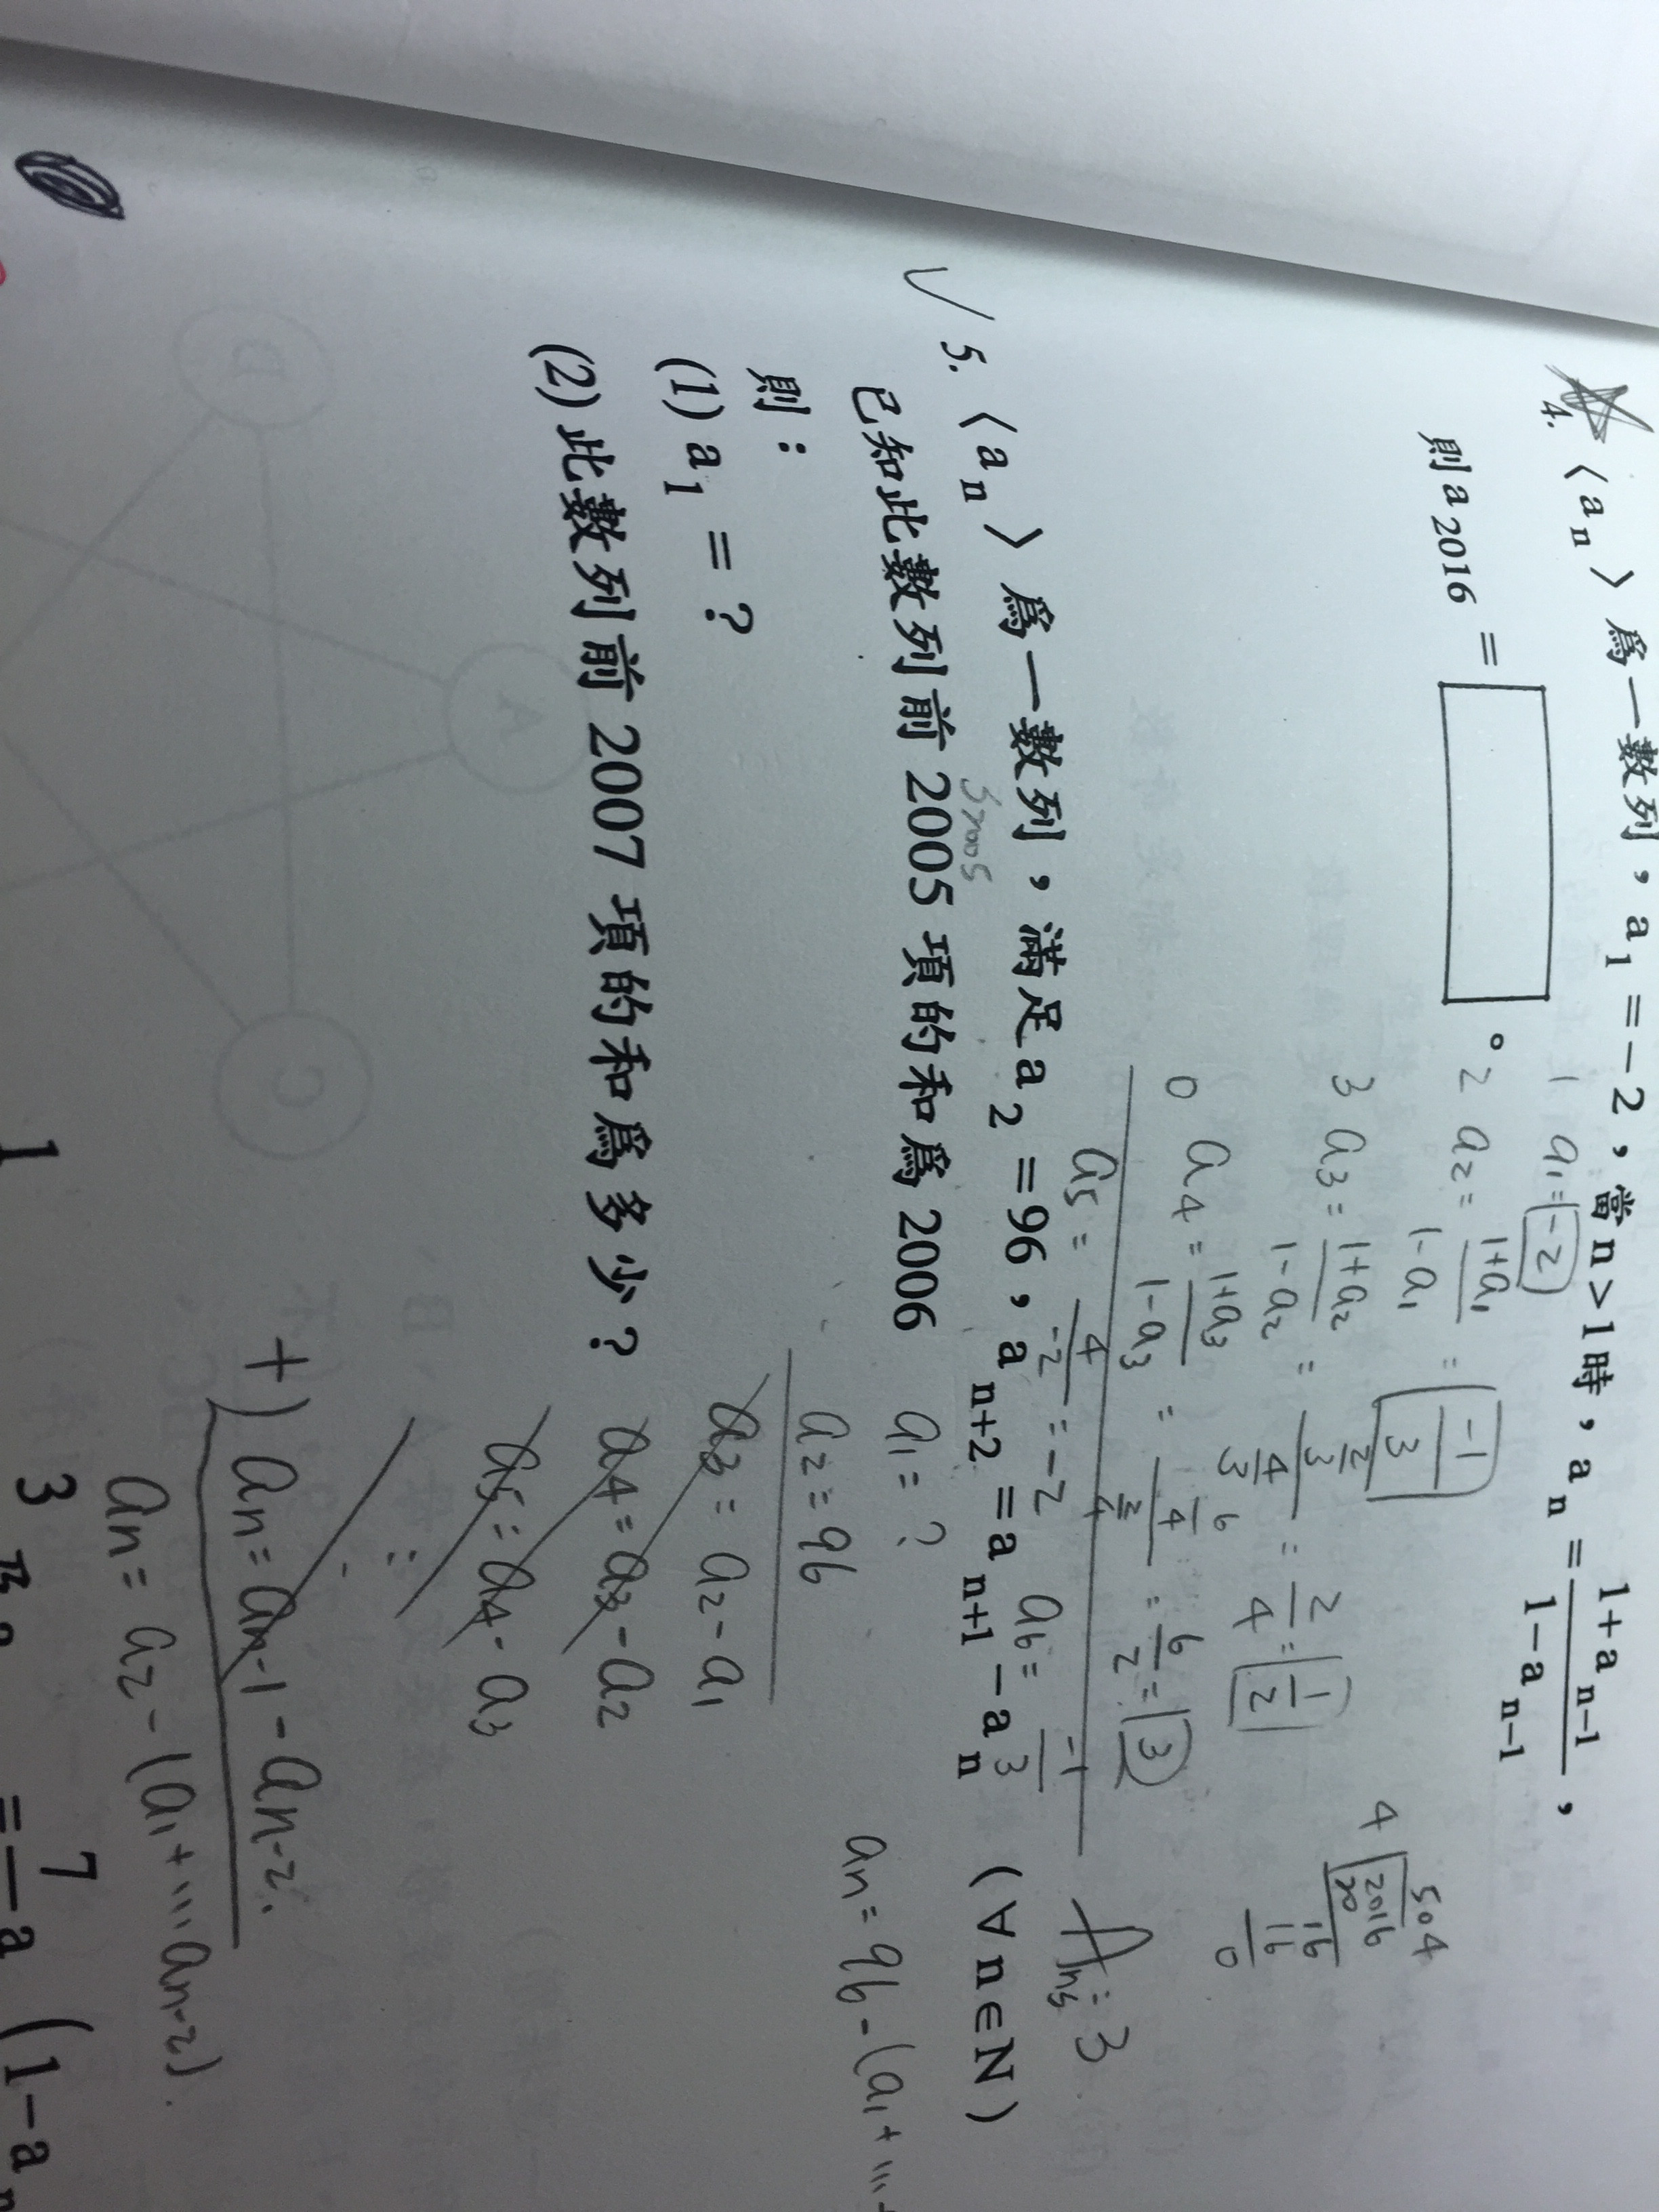 4. 〈a_n〉為一數列，a_1=-2，當n>1時，a_n=\frac{1+a_{n-1}}{1-a_{n-1}}，
則a_{2016}=□。
1 a_1=-2
2 a_2=\frac{1+a_1}{1-a_1}=\frac{-1}{3}
3 a_3=\frac{1+a_2}{1-a_2}=\frac{\frac{2}{3}}{\frac{4}{3}}=\frac{2}{4}=\frac{1}{2}
0 a_4=\frac{1+a_3}{1-a_3}=
=\frac{6}{2}=3
a_5=\frac{4}{-2}=-2 a_6=\frac{-1}{3}
504
4 2016
20
16
16
0
Ans:3
5. 〈a_n〉為一數列，滿足a_2=96，a_{n+2}=a_{n+1}-a_n （∀n∈N）
已知此數列前2005項的和為2006
S2005
則：
(1) a_1=？
(2) 此數列前2007項的和為多少？
a_1=?
a_2=96
a_3=a_2-a_1
a_4=a_3-a_2
a_5=a_4-a_3
⋮
+) a_n=a_{n-1}-a_{n-2}.
a_n=a_2-(a_1+...a_{n-2}).
a_n=96-(a_1+...
1
3
7
=
a (1-a